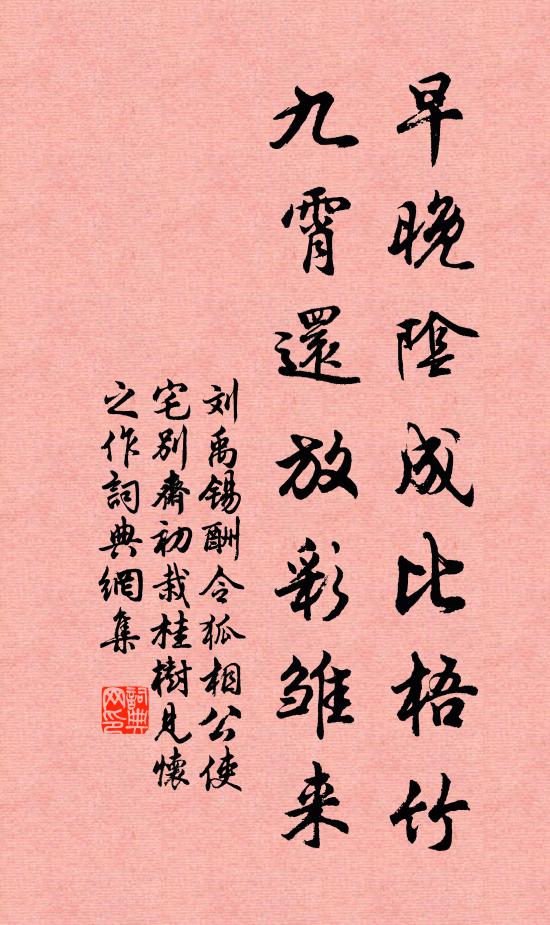 早晚陰成比梧竹
九霄還放彩雏来
刘禹锡酬令狐相公使
宅别齋初栽桂樹見懷
之作詞典網集
詞典网印